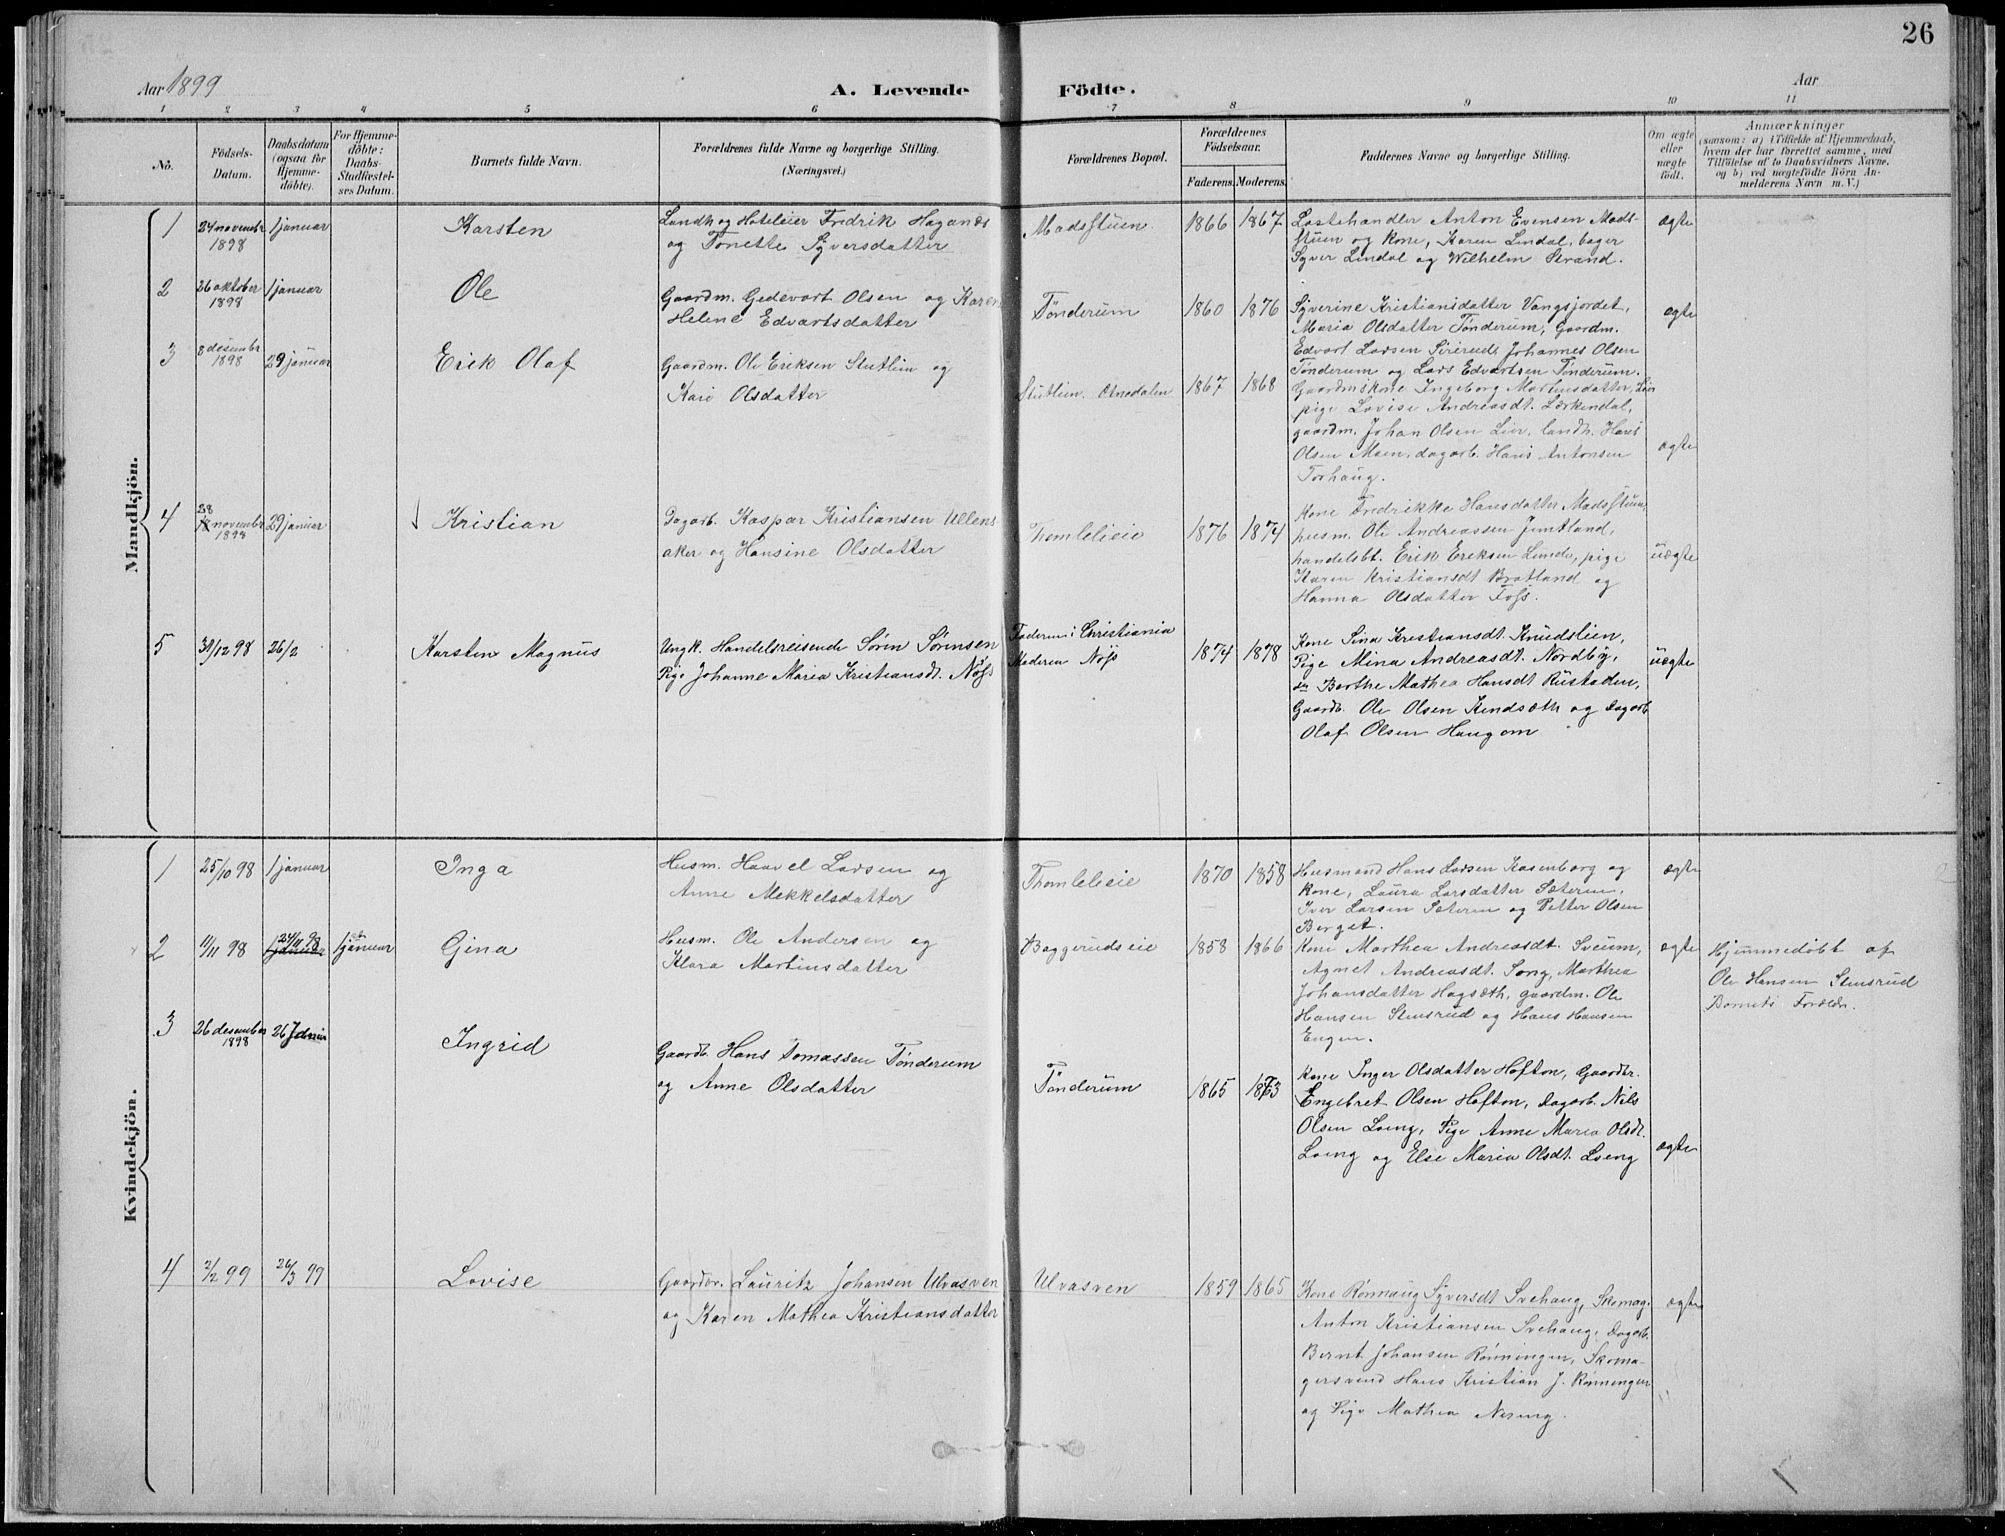 26
Aar 1899
A. Levende Födte.
Aar
1 2 3 4 5 6 7 8 9 10 11
No.
Födsels-
Datum.
Daabsdatum
(ogsaa for
Hjemme-
döbte).
For Hjemme-
döbte:
Daabs-
Stadfæstel-
ses Datum.
Barnets fulde Navn.
Forældrenes fulde Navne og borgerlige Stilling.
(Næringsvei.)
Forældrenes Bopæl.
Forældrenes
Födselsaar.
Faderens.
Moderens.
Faddernes Navne og borgerlige Stilling.
Om ægte
eller
uægte
födt.
Anmærkninger
(saasom: a) i Tilfælde af Hjemmedaab,
hvem der har forrettet samme, med
Tilföielse af to Daabsvidners Navne,
og b) ved uægtefödte Börn An-
melderens Navn m. V.)
Mandkjön.
1
24 novembr
1898
1 januar
Karsten
Landh. og Hoteleier Fredrik Haganæs
og Tonette Syversdatter
Madsstuen
1866
1867
Lastehandler Anton Evensen Mads-
stuen og kone, Karen Lindal, bager
Syver Lindal og Wilhelm Strand.
ægte
2
26 oktober
1898
1 januar
Ole
Gaardm. Gedevart Olsen og Karen
Helene Edvartsdatter
Tønderum
1860
1876
Syverine Kristiansdatter Vangsjordet,
Maria Olsdatter Tønderum, Gaardm.
Edvart Larsen Sirerud, Johannes Olsen
Tønderum og Lars Edvartsen Tønderum.
ægte
3
8 desembr
1898
29 januar
Erik Olaf
Gaardm. Ole Eriksen Slutlein og
Kari Olsdatter
Slutlein Etnedalen
1867
1868
Gaardmskone Ingeborg Martinsdatter Lier
pige Lovise Andreasdt. Lærkendal,
gaardm. Johan Olsen Lier, landh. Hans
Olsen Moen, dagarb. Hans Antonsen
Torhaug.
ægte
4
28
novembr
1898
29 januar
Kristian
Dagarb. Kaspar Kristiansen Ullens
aker og Hansine Olsdatter
Thomleleie
1876
1874
Kone Fredrikke Hansdatter Madsstuen,
husm. Ole Andreassen Jemtland,
handelsbt. Erik Eriksen Linde, pige
Karen Kristiansdt Bratland og
Hanna Olsdatter Foss.
uægte
5
31/12 98
26/2
Karsten Magnus
Ungk. Handelsreisende Sørin Sørnsen
Pige Johanne Maria Kristiansdt. Nøss
Faderen i Christiania
Moderen Nøss
1874
1878
Kone Sina Kristiansdt. Knudslien,
Pige Mina Andreasdt. Nordby,
do Berthe Mathea Hansdt Rustaden,
Gaardb. Ole Olsen Kindsæth og Dagarb
Olaf Olsen Haugom
uægte
Kvindekjön.
1
25/10 98
1 januar
Inga
Husm. Haavel Larsen og
Anne Mekkelsdatter
Thomleleie
1870
1858
Husmand Hans Larsen Rosenborg og
kone, Laura Larsdatter Sæteren,
Iver Larsen Sæteren og Petter Olsen
Berget.
ægte
2
11/11 98
24/11 98
1 januar
1 januar
Gina
Husm. Ole Andersen og
Klara Martinsdatter
Baggerudseie
1858
1866
Kone Marthea Andreasdt. Sveum,
Agnet Andreasdt. Song, Marthea
Johansdatter Hagsæth, gaardm. Ole
Hansen Stensrud og Hans Hansen
Engen.
ægte
Hjemmedøbt af
Ole Hansen Stensrud
Barnets Forældre.
3
26 desember
1898
26 Febuar
Ingrid
Gaardb. Hans Tomassen Tønderum
og Anne Olsdatter
Tønderum
1865
1873
Kone Inger Olsdatter Hofton, Gaardbr.
Engebret Olsen Hofton, Dagarb. Nils
Olsen Loeng, Pige Anne Maria Olsdt.
Loeng og Else Maria Olsdt. Loeng
ægte
4
2/2 99
26/3 99
Lovise
Gaardbr. Lauritz Johansen Ulvasven
og Karen Mathea Kristiansdatter
Ulvasven
1859
1865
Kone Rønnaug Syversdt Svehaug, Skomag.
Anton Kristiansen Svehaug, Dagarb.
Bernt Johansen Rønningen, Skoma-
gersvend Hans Kristian J. Rønningen
og Pige Mathea Nesing.
ægte